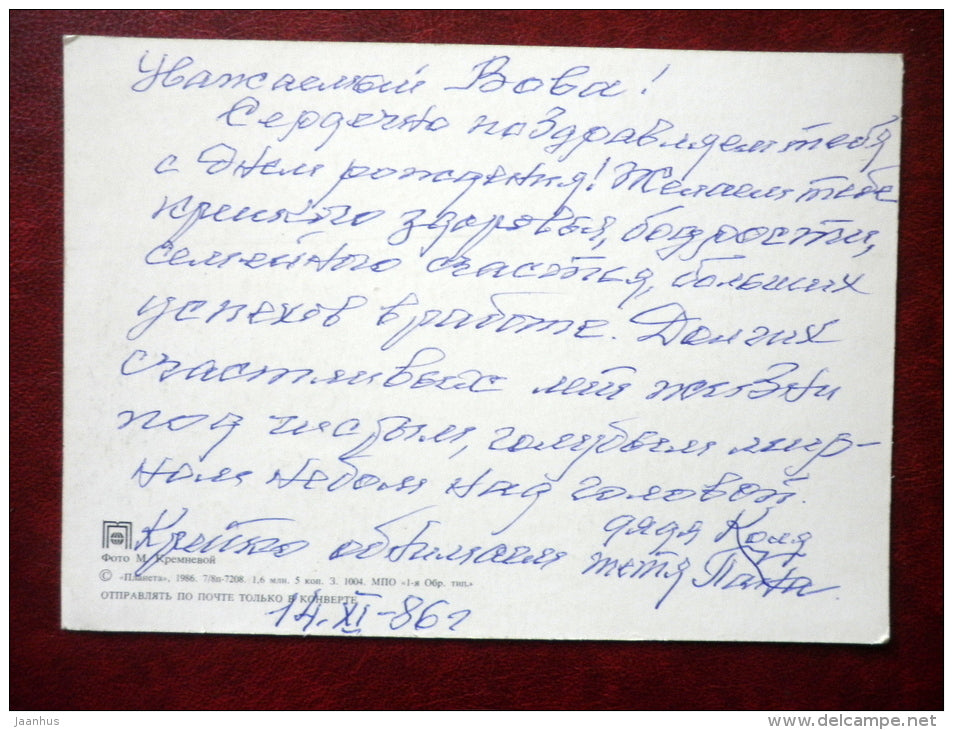 Уважаемый Вова!
Сердечно поздравляем тебя
с днем рождения! Желаем тебе
крепкого здоровья, бодрости,
семейного счастья, больших
успехов в работе. Долгих
счастливых лет жизни
под чистым, голубым мир-
ным небом над головой.
Крепко обнимаем дядя Коля
тетя
Фото М. Кремневой
© «Планета», 1986. 7/8п-7208. 1,6 млн. 5 коп. З. 1004. МПО «1-я Обр. тип.»
ОТПРАВЛЯТЬ ПО ПОЧТЕ ТОЛЬКО В КОНВЕРТЕ
14.XI-86г
Jaanhus
www.delcampe.net